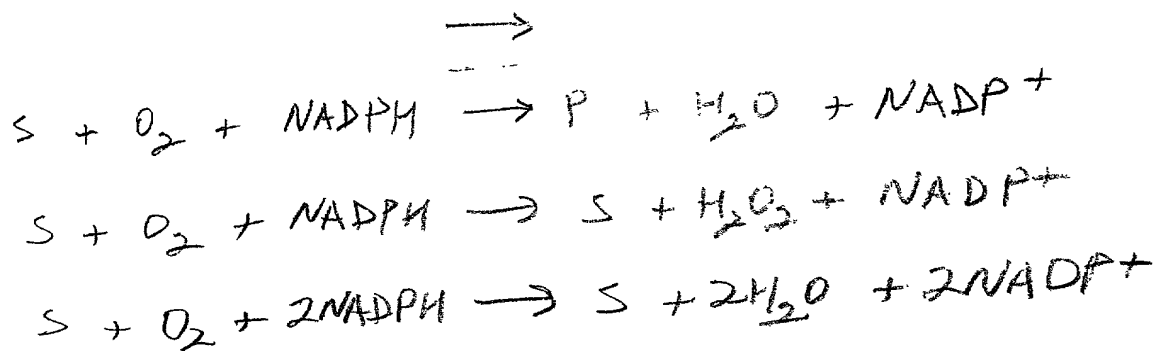 →
S + O₂ + NADPH → P + H₂O + NADP⁺
S + O₂ + NADPH → S + H₂O₂ + NADP⁺
S + O₂ + 2NADPH → S + 2H₂O + 2NADP⁺